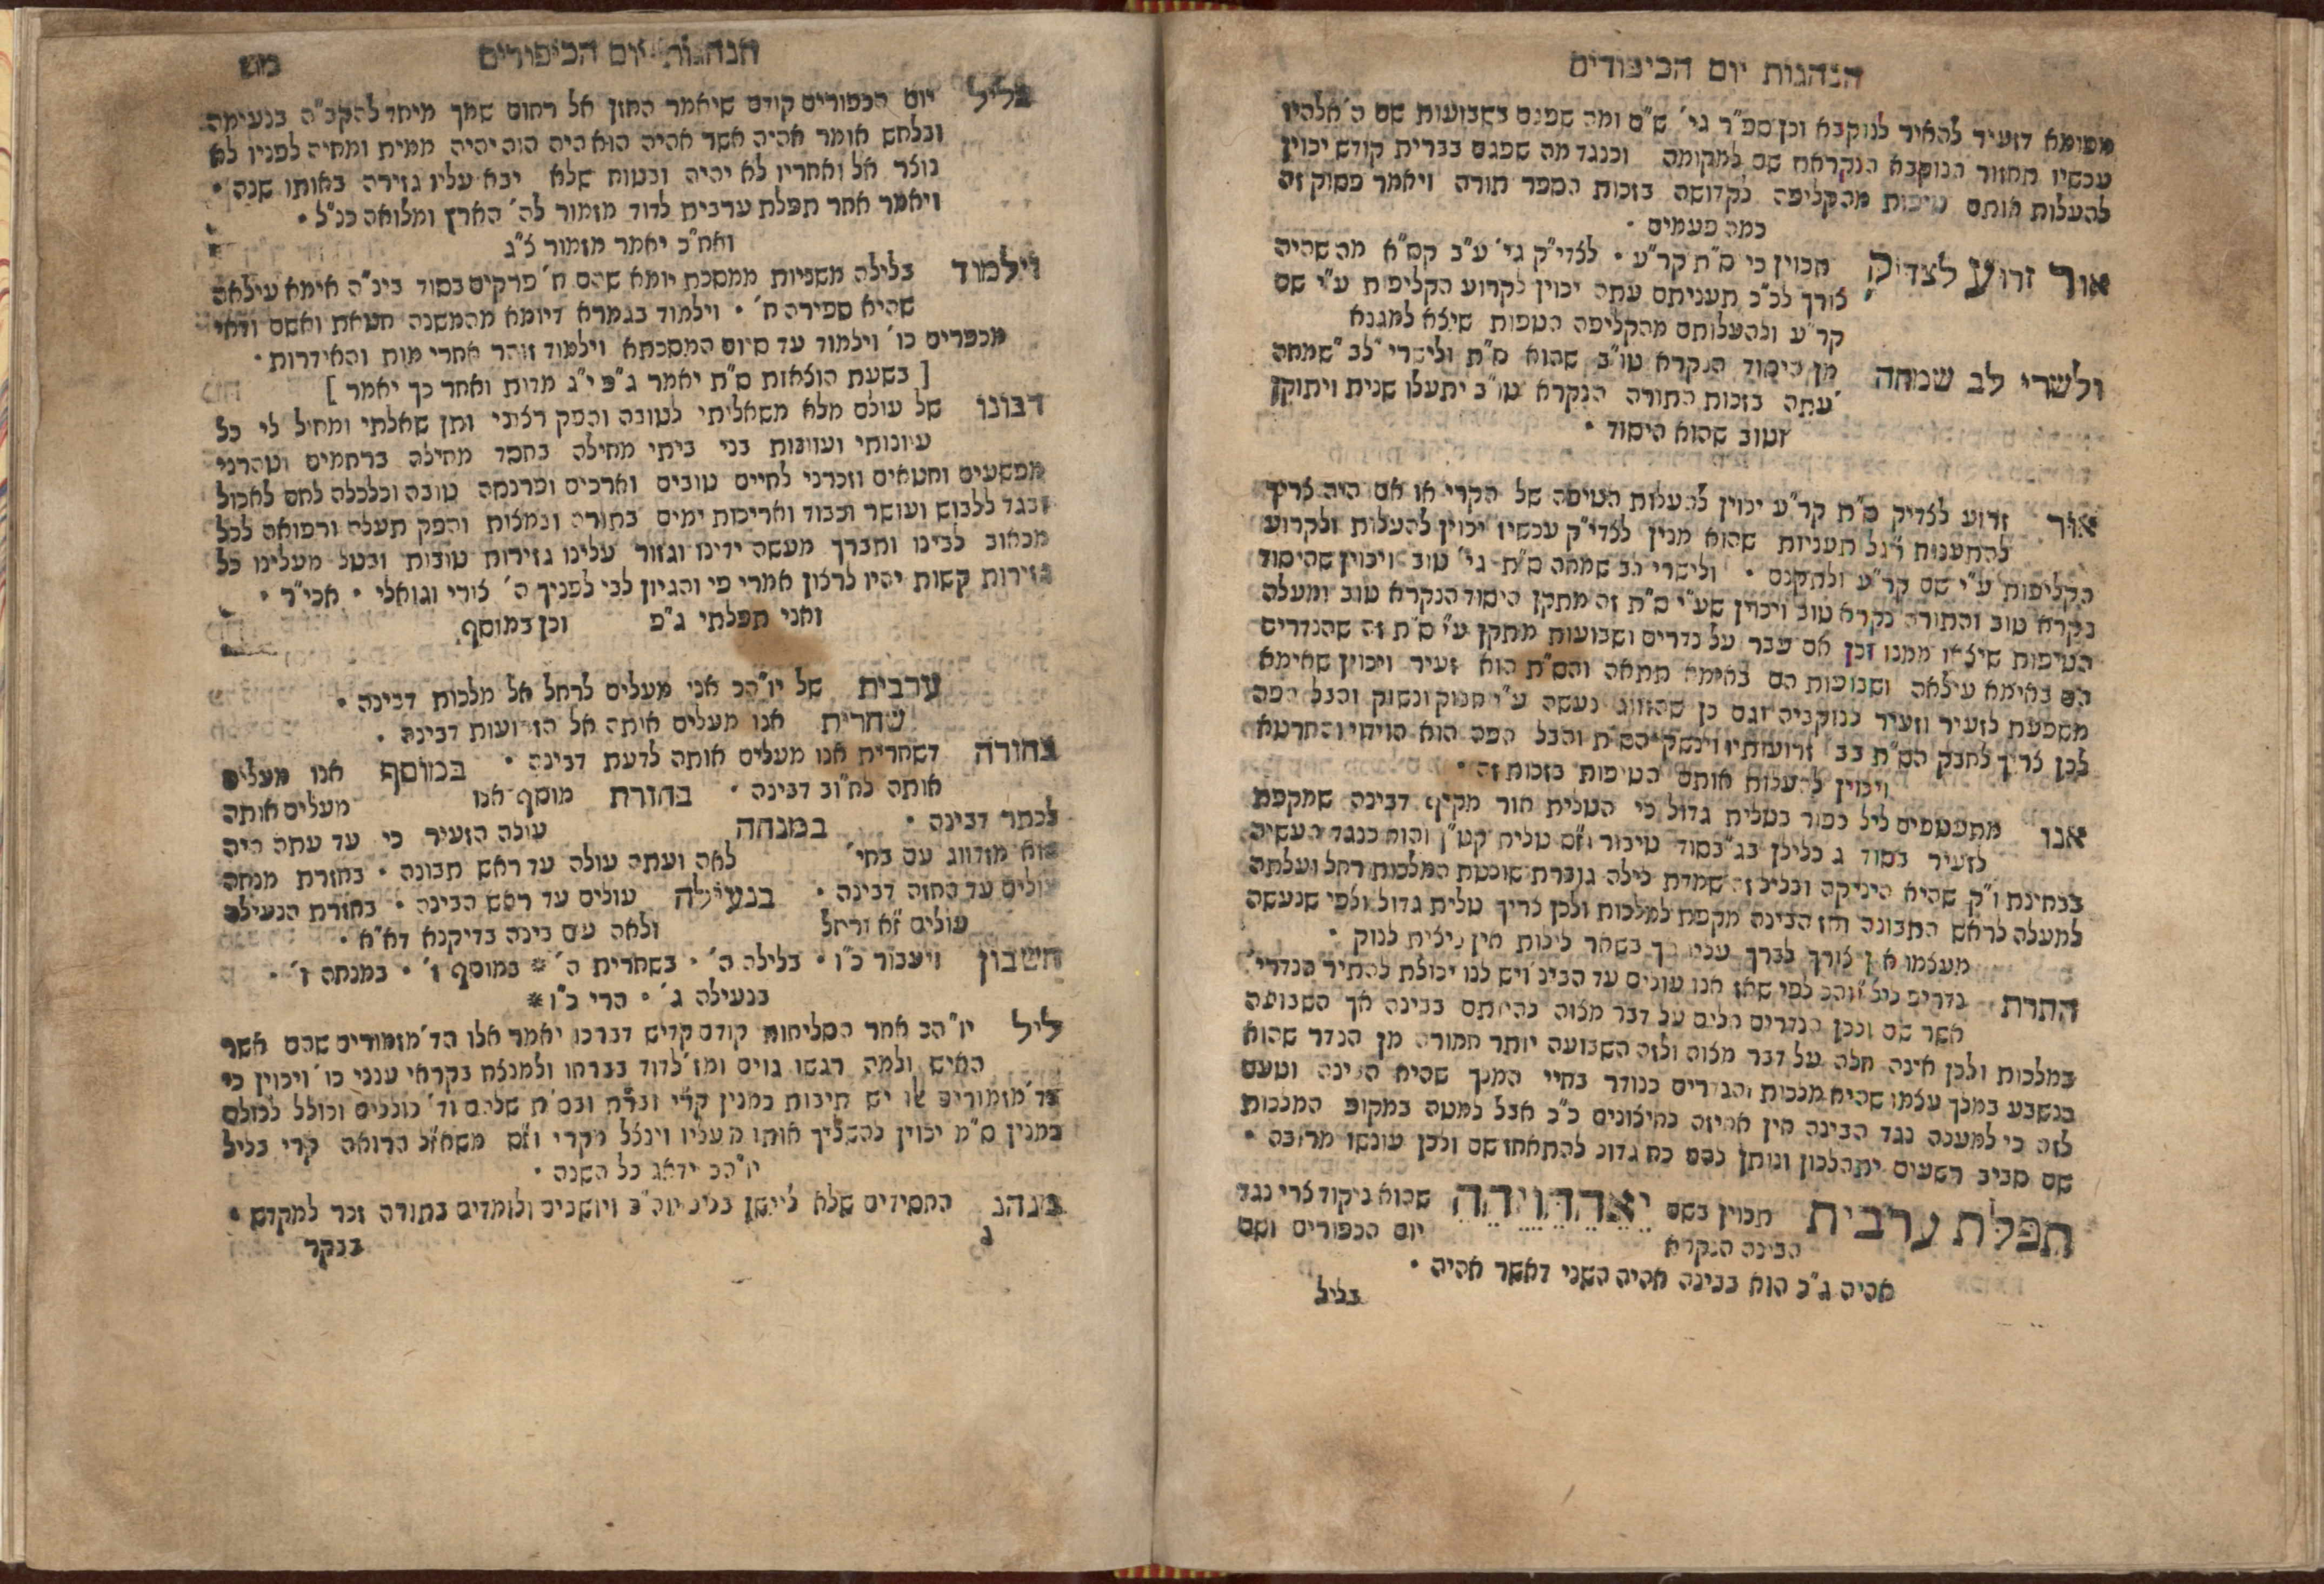 הנהגות יום הכיפורים
מפומא דזעיר להאיר לנוקבא וכן ספ״ר גי׳ ש״ם ומה שפגם בשבועות שם ה׳ אלהיו
עכשיו תחזור הנוקבא הנקראת שם למקומה וכנגד מה שפגם בברית קודש יכוין
להעלות אותם טיפות מהקליפה לקדושה בזכות הספר תורה ויאמר פסוק זה
כמה פעמים •
אור זרוע לצדיק תכוין כי ס״ת קר״ע • לצדי״ק גי׳ ע״ב קס״א מה שהיה
צורך לכ״כ תעניתם עתה יכוין לקרוע הקליפות ע״י שם
קר״ע ולהעלותם מהקליפה הטפות שיצא למגנא
ולשרי לב שמחה מן היסוד הנקרא טו״ב שהוא ס״ת ולישרי לב שמחה
עתה בזכות התורה הנקרא טו״ב יתעלו שנית ויתוקן
וטוב שהוא היסוד •
אור זרוע לצדיק ס״ת קר״ע יכוין להעלות הטיפה של הקרי או אם היה צריך
להתענות רגל תעניות שהוא מנין לצדי״ק עכשיו יכוין להעלות ולקרוע
הקליפות ע״י שם קר״ע ולתקנם • ולישרי לב שמחה ס״ת גי׳ טוב ויכוין שהיסוד
נקרא טוב והתורה נקרא טוב ויכוין שע״י ס״ת זה מתקן היסוד הנקרא טוב ומעלה
הטיפות שיצאו ממנו וכן אם עבר על נדרים ושבועות מתקן ע״י ס״ת זה שהנדרים
הם באימא עילאה ושבועות הם באימא תתאה והס״ת הוא זעיר ויכוין שאימא
משפעת לזעיר וזעיר לנוקביה וגם כן שהזווג נעשה ע״י חבוק ונשוק והבל הפה
לכן צריך לחבק הס״ת בב׳ זרועותיו וינשק הס״ת והבל הפה הוא הוידוי והחרטא
ויכוין להעלות אותם הטיפות בזכות זה •
אנו מתעטפים ליל כפור בטלית גדול כי הטלית אור מקיף דבינה שמקפת
לזעיר בסוד ג כלילן בג״ בסוד טיבור וגם טלית קט״ן והוא כנגד העשיה
בבחינת ו״ק שהיא היניקה ובליל זה שמדת לילה גוברת שולטת המלכות רחל ועלתה
למעלה לראש התבונה ואז הבינה מקפת למלכות ולכן צריך טלית גדול ולפי שנעשה
מעצמו אין צורך לברך עליו כך בשאר לילות אין ציצית לנוק •
התרת נדרים ליל יוהכ לפי שאז אנו עולים עד הבינ׳ ויש לנו יכולת להתיר הנדרי׳
אשר שם ולכן הנדרים חלים על דבר מצוה להיותם בבינה אך השבועה
במלכות ולכן אינה חלה על דבר מצוה ולזה השבועה יותר חמורה מן הנדר שהוא
כנשבע במלך עצמו שהיא מלכות והנדרים כנודר בחיי המלך שהיא הבינה וטעם
לזה כי למעלה נגד הבינה אין אחיזה בחיצונים כ״כ אבל למטה במקום המלכות
שם סביב רשעים יתהלכון ונותן להם כח גדול להתאחז שם ולכן עונשו מרובה •
תפלת ערבית תכוין בשם יאהדויהה שהוא ניקוד צרי נגד
הבינה הנקרא יום הכפורים ושם
אהיה ג״כ הוא בבינה אהיה השני דאשר אהיה •
בליל
הנהגות יום הכיפורים
בליל יום הכפורים קודם שיאמר החזן אל רחום שמך מיחד להקב״ה בנעימה
ובלחש אומר אהיה אשר אהיה הוא היה הוה יהיה ממית ומחיה לפניו לא
נוצר אל ואחריו לא יהיה ובטוח שלא יבא עליו גזירה באותו שנה •
ויאמר אחר תפלת ערבית לדוד מזמור לה׳ הארץ ומלואה כנ״ל •
ואח״כ יאמר מזמור צ״ג
וילמוד בלילה משניות ממסכת יומא שהם ח׳ פרקים בסוד בינ״ה אימא עילאה
שהיא ספירה ח׳ • וילמוד בגמרא דיומא מהמשנה חטאת ואשם ודאי
מכפרים כו׳ וילמוד עד סיום המסכתא וילמוד זוהר אחרי מות והאידרות •
[ בשעת הוצאת ס״ת יאמר ג״פ י״ג מדות ואחר כך יאמר ]
רבונו של עולם מלא משאליתי לטובה והפק רצוני ותן שאלתי ומחול לי כל
עונותי ועונות בני ביתי מחילה בחסד מחילה ברחמים וטהרני
מפשעים וחטאים וזכרני לחיים טובים וארכים ופרנסה טובה וכלכלה לחם לאכול
ובגד ללבוש ועושר וכבוד ואריכות ימים בתורה ובמצות והפק תעלה ורפואה לכל
מכאוב לבינו ותברך מעשה ידינו וגזור עלינו גזירות טובות ובטל מעלינו כל
גזירות קשות יהיו לרצון אמרי פי והגיון לבי לפניך ה׳ צורי וגואלי • אכי״ר •
ואני תפלתי ג״פ וכן במוסף
ערבית של יו״הכ אנו מעלים לרחל אל מלכות דבינה •
שחרית אנו מעלים אותה אל הזרועות דבינה •
בחזרה דשחרית אנו מעלים אותה לדעת דבינה • במוסף אנו מעלים
אותה לח״וב דבינה • בחזרת מוסף אנו מעלים אותה
לכתר דבינה • במנחה עולה הזעיר כי עד עתה היה
הוא מזדווג עם בחי׳ לאה ועתה עולה עד ראש תבונה • בחזרת מנחה
עולים עד החזה דבינה • בנעילה עולים עד ראש הבינה • בחזרת הנעילה
עולים ז״א ורחל ולאה עם בינה בדיקנא דא״א •
חשבון ויעבור כ״ו • בלילה ה׳ • בשחרית ה׳ * במוסף ז׳ • במנחה ו׳ •
בנעילה ג׳ • הרי כ״ו *
ליל יו״הכ אחר הסליחות קודם קדיש דברכו יאמר אלו הד׳ מזמורים שהם אשר
האיש ולמה רגשו גוים ומז׳ לדוד בברחו ולמנצח בקראי ענני כו׳ ויכוין כי
בד׳ מזמורים אלו יש תיבות כמנין קרי ובר״ת ובס״ת שלהם וד׳ כוללים וכולל לכולם
כמנין ס״מ יכוין להשליך אותו מעליו וינצל מקרי וגם משא״כ הרואה קרי בליל
יו״הכ ידאג כל השנה •
מנהג החסידים שלא לישן בליל יוה״כ ויושבים ולומדים בתורה זכר למקדש •
ג בנקר